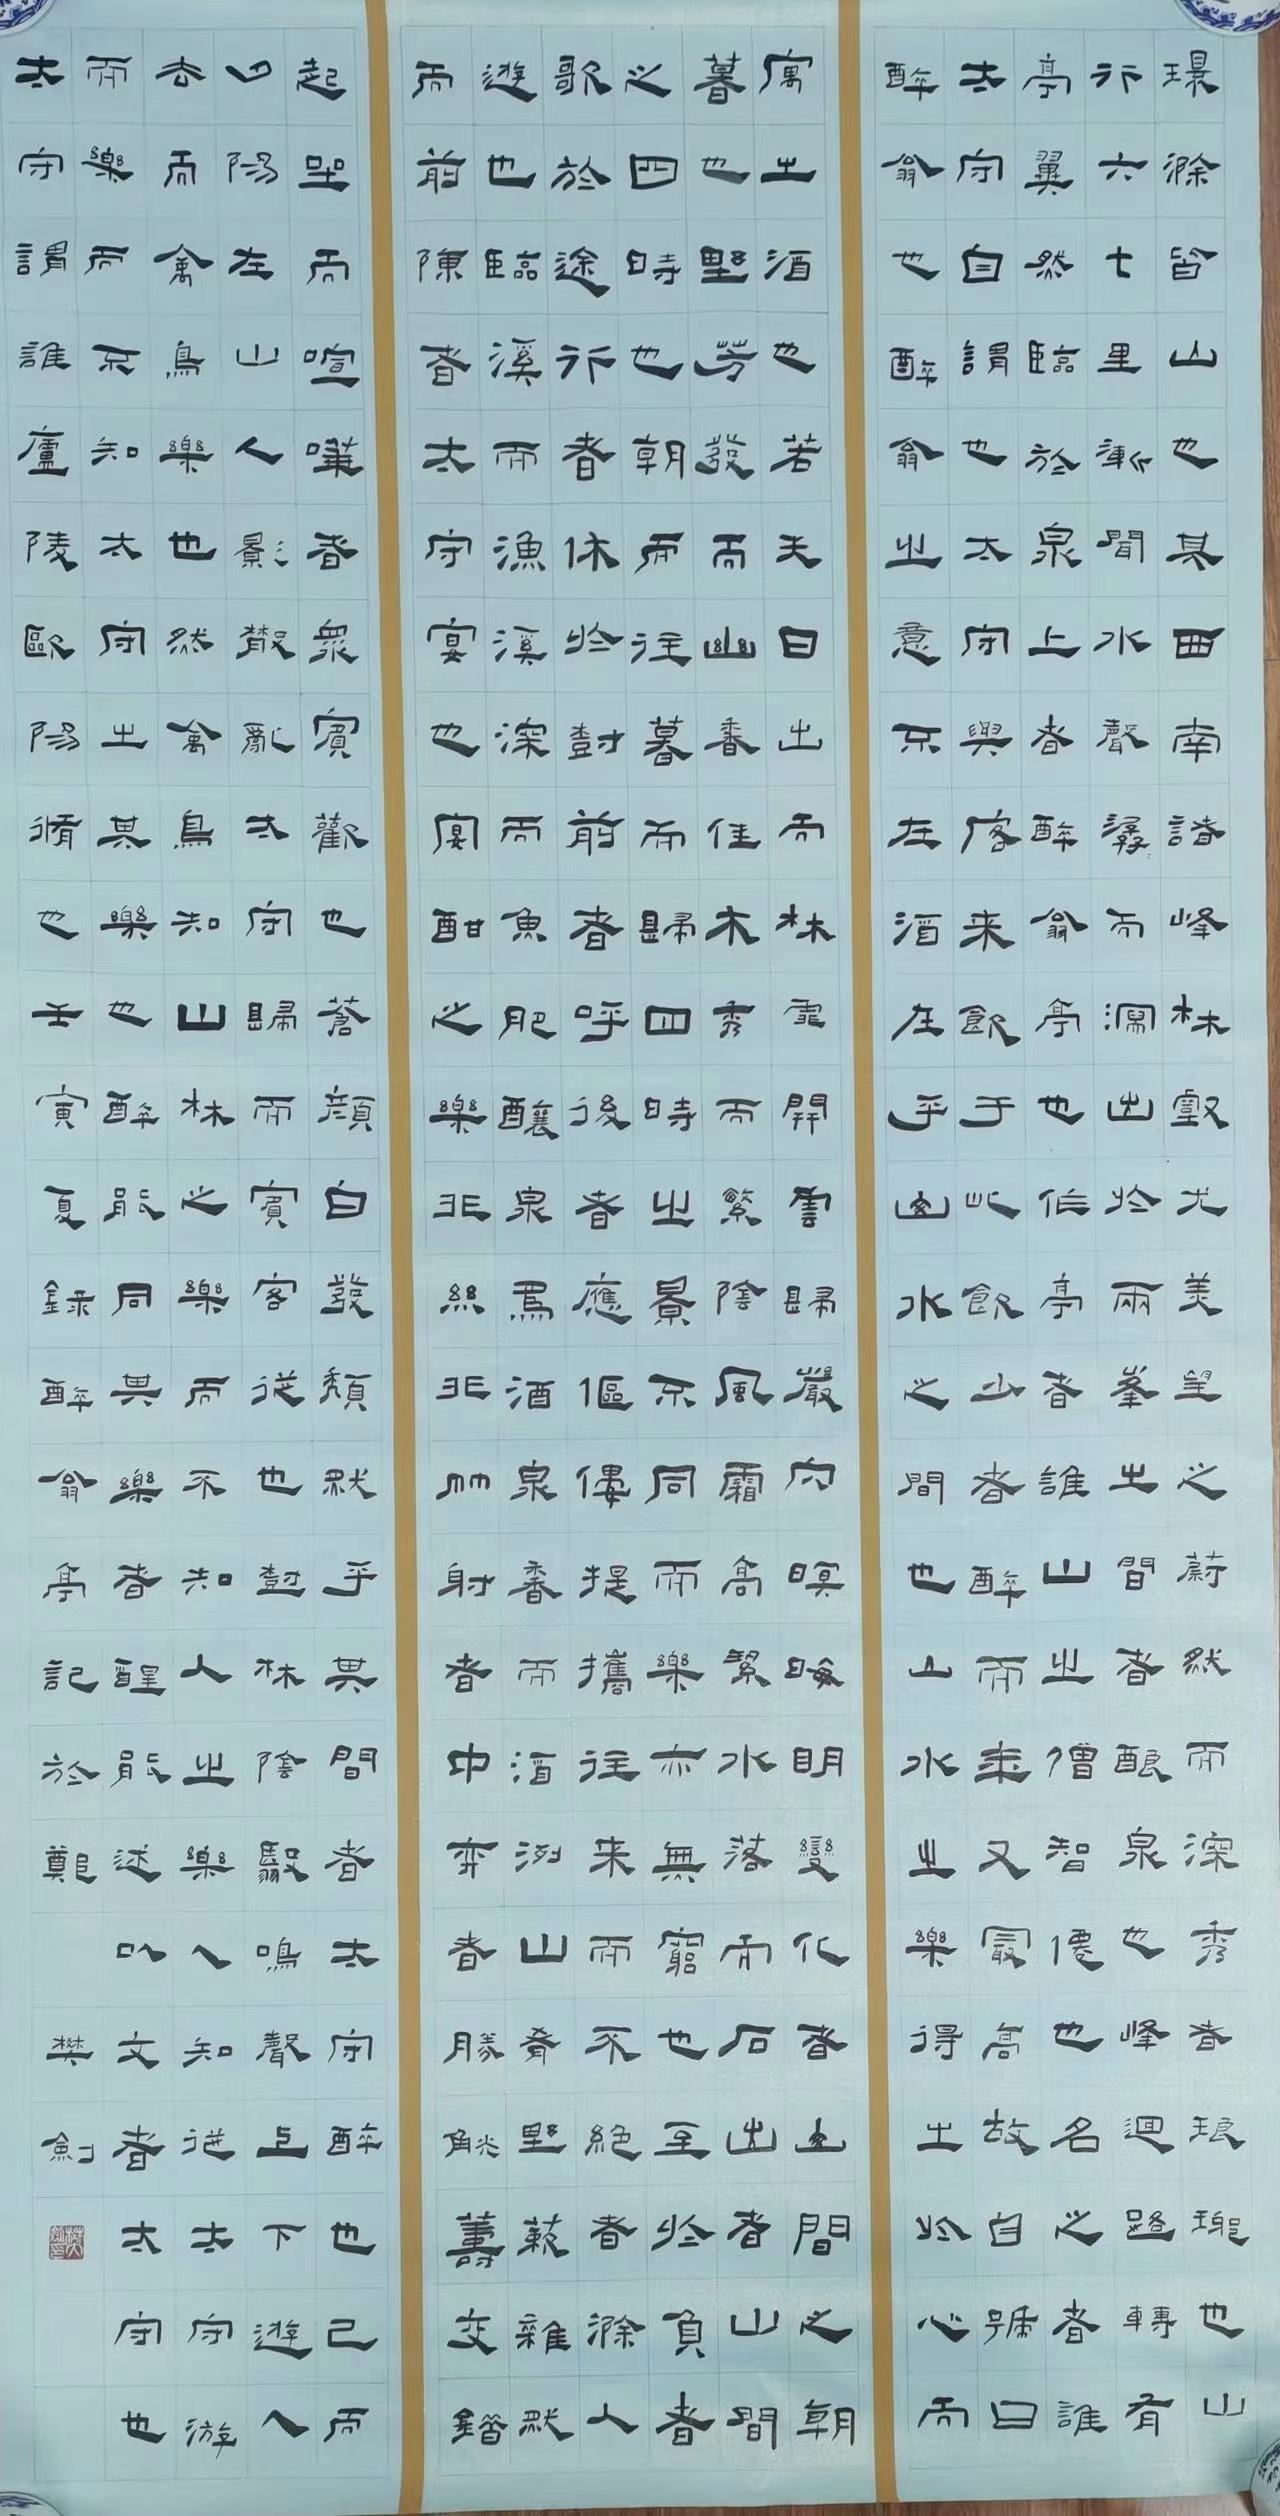 環滁皆山也其西南諸峰林壑尤美望之蔚然而深秀者琅琊也山
行六七里漸聞水聲潺而瀉出於兩峯之間者釀泉也峰迴路轉有
亭翼然臨於泉上者醉翁亭也作亭者誰山之僧智僊也名之者誰
太守自謂也太守與客来飲于此飲少者醉而年又最高故自號曰
醉翁也醉翁之意不在酒在乎山水之間也山水之樂得之於心而
寓之酒也若夫日出而林霏開雲歸巖穴暝晦明變化者山間之朝
暮也野芳發而幽香佳木秀而繁陰風霜高絜水落而石出者山間
之四時也朝而往暮而歸四時之景不同而樂亦無窮也至於負者
歌於途行者休於樹前者呼後者應傴僂提攜往来而不絕者滁人
遊也臨溪而漁溪深而魚肥釀泉為酒泉香而酒洌山肴野蔌雜然
而前陳者太守宴也宴酣之樂非絲非竹射者中弈者勝觥籌交錯
起坐而喧嘩者衆賓歡也蒼顏白發頹然乎其間者太守醉也已而
夕陽在山人影散亂太守歸而賓客從也樹林陰翳鳴聲上下遊人
去而禽鳥樂也然禽鳥知山林之樂而不知人之樂人知從太守游
而樂而不知太守之其樂也醉能同其樂者醒能述以文者太守也
太守謂誰廬陵歐陽脩也壬寅夏錄醉翁亭記於鄭 樊劍